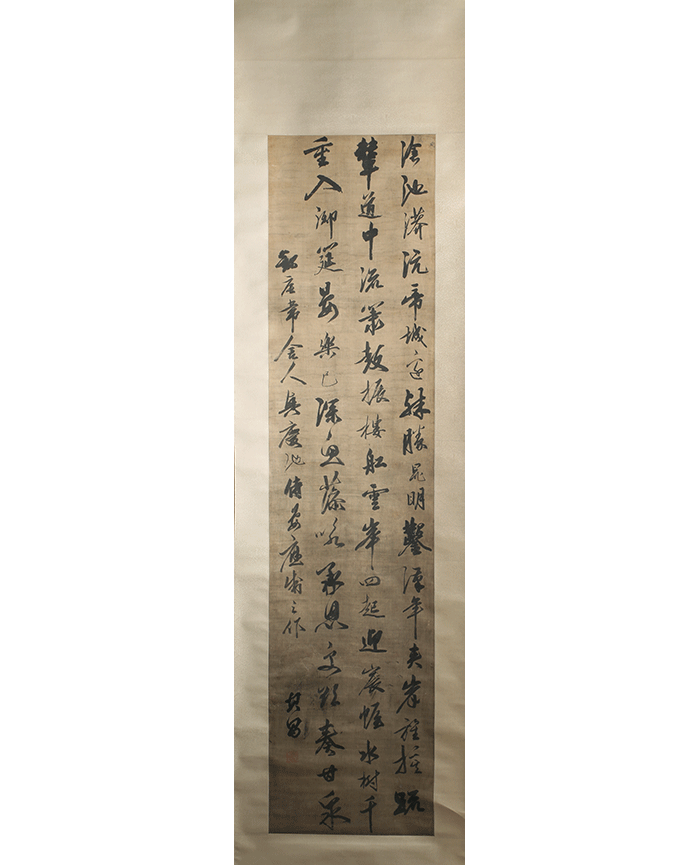 滄池漭沆帝城邊殊勝昆明鑿漢年夾岸旌旗疏
輦道中流簫鼓振樓船雲峯四起迎宸幄水樹千
重入御筵宴樂已深魚藻詠承恩更欲奏甘泉
唐韋舍人興慶池侍宴應制之作
其昌